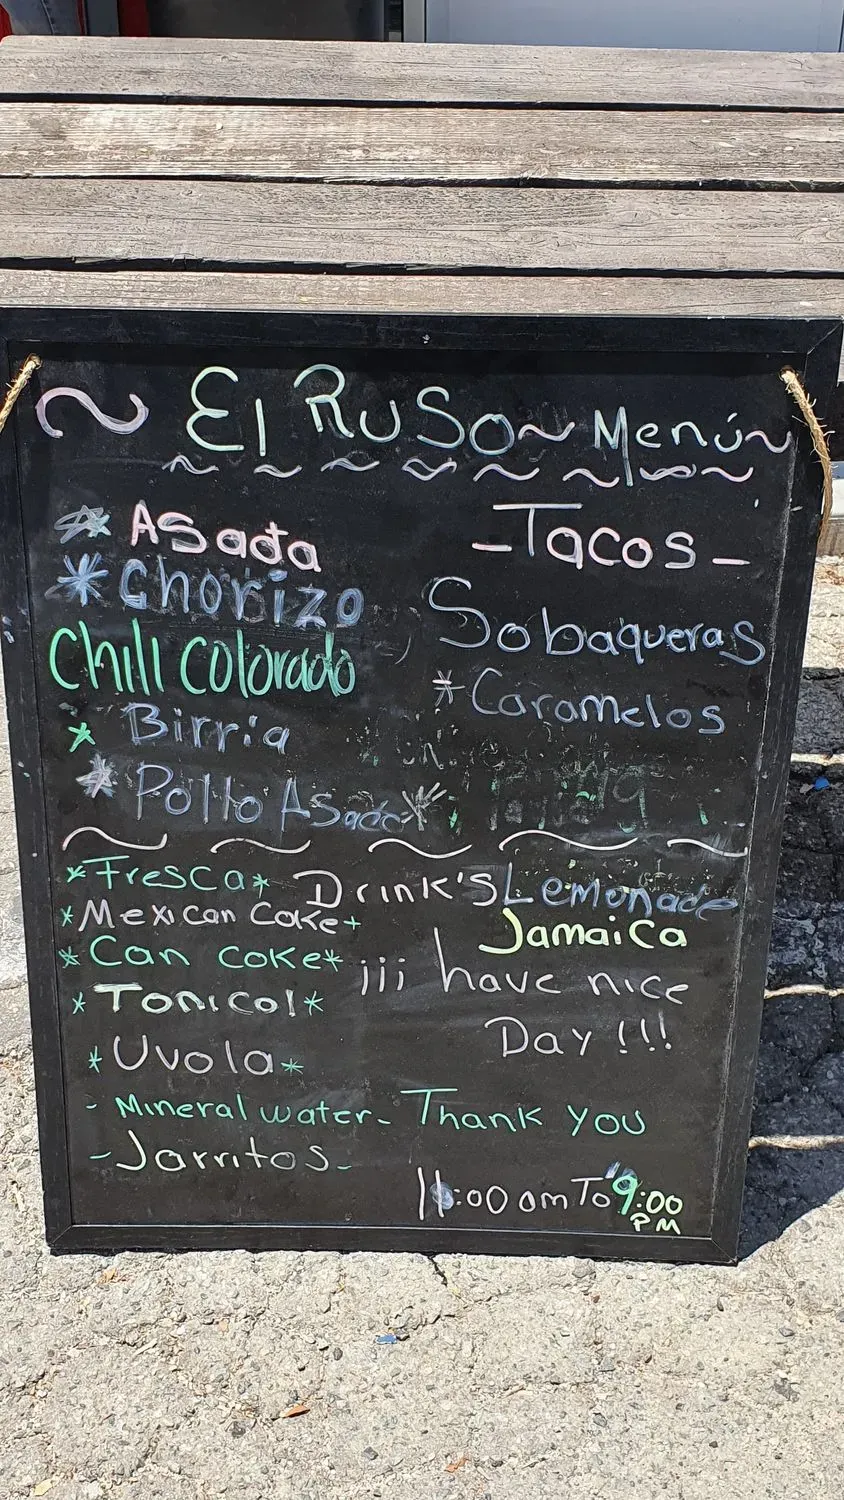 ~ El Ruso ~ Menú ~
* Asada
* Chorizo
Chill Colorado
* Birria
* Pollo Asado *
- Tacos -
Sobaqueras
* Caramelos
* Fresca *
* Mexican Coke +
* Can coke *
* Tonicol *
* Uvola *
- Mineral water -
- Jarritos -
Drink's Lemonade
Jamaica
¡¡¡ have nice
Day !!!
Thank you
11:00 am To 9:00
PM